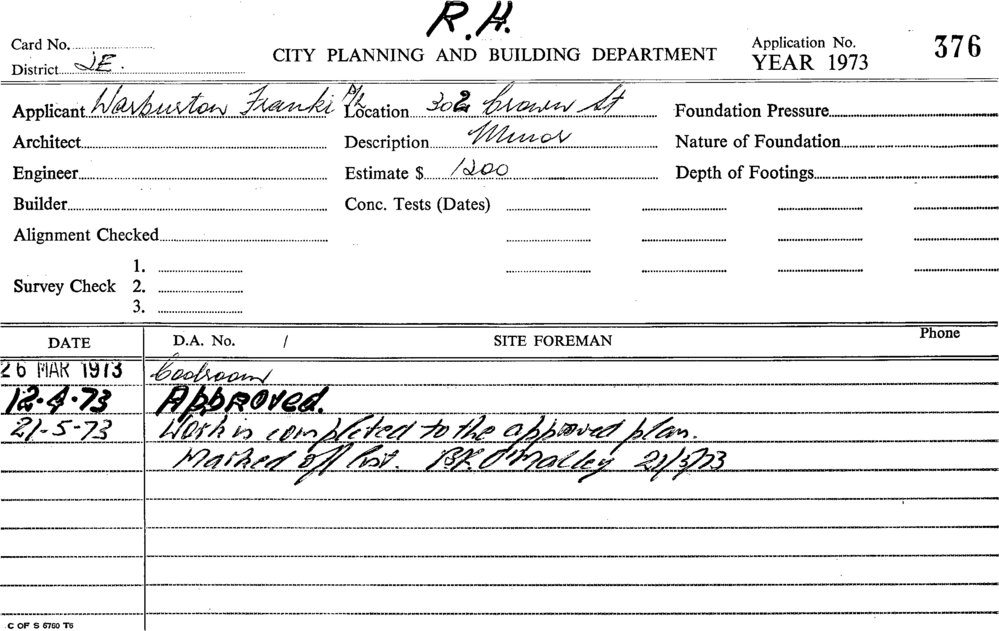 R.H.
Card No.
CITY PLANNING AND BUILDING DEPARTMENT
Application No. 376
YEAR 1973
District JE.
Applicant Warburton Franki P/L Location 302 Crown St Foundation Pressure
Architect Description Minor Nature of Foundation
Engineer Estimate $ 1200 Depth of Footings
Builder Conc. Tests (Dates)
Alignment Checked
1.
Survey Check 2.
3.
DATE D.A. No. / SITE FOREMAN Phone
26 MAR 1973 Coolroom
12.4.73 Approved.
21-5-73 Work is completed to the approved plan.
Marked off list. B.K. O'Malley 21/5/73
C OF S 5760 T6